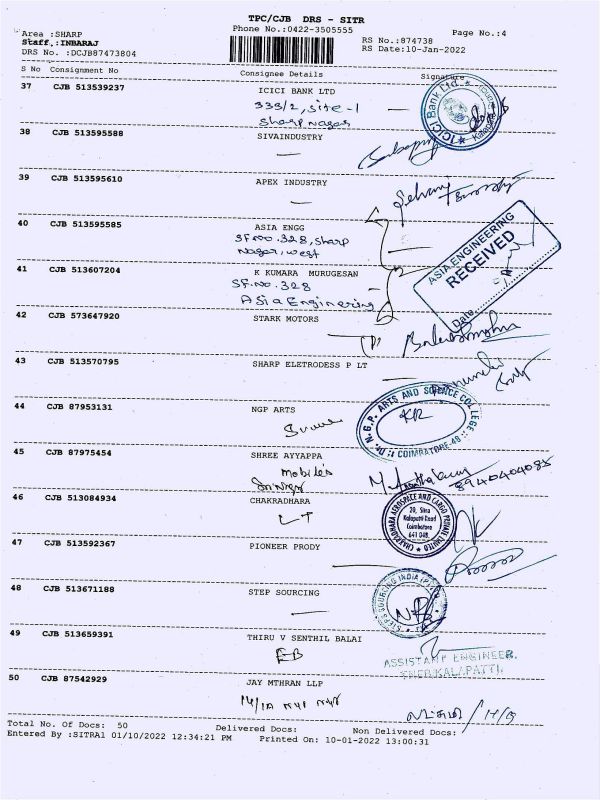 TPC/CJB DRS - SITR
Phone No.:0422-3505555
Page No.:4
Area :SHARP
Staff.:INBARAJ
DRS No. :DCJB87473804
RS No.:874738
RS Date:10-Jan-2022
S No Consignment No Consignee Details Signature
37 CJB 513539237 ICICI BANK LTD
333/2, Site-1
Sharp Nagar
ICICI Bank Ltd.
38 CJB 513595588 SIVAINDUSTRY
39 CJB 513595610 APEX INDUSTRY
40 CJB 513595585 ASIA ENGG
SF.No. 328, Sharp
Nagar, West
ASIA ENGINEERING
RECEIVED
Date
41 CJB 513607204 K KUMARA MURUGESAN
SF.No. 328
Asia Enginering
42 CJB 573647920 STARK MOTORS
43 CJB 513570795 SHARP ELETRODESS P LT
44 CJB 87953131 NGP ARTS
Dr. N.G.P. ARTS AND SCIENCE COLLEGE
COIMBATORE-48
KR
45 CJB 87975454 SHREE AYYAPPA
mobiles
8940404085
46 CJB 513084934 CHAKRADHARA
LT
CHAKRADHARA AEROSPACE AND CARGO PRIVATE LIMITED
Kalapatti Road
Coimbatore
641 048.
47 CJB 513592367 PIONEER PRODY
48 CJB 513671188 STEP SOURCING
STEP SOURCING INDIA (P)
49 CJB 513659391 THIRU V SENTHIL BALAI
EB
ASSISTANT ENGINEER.
TNEB KALAPATTI.
50 CJB 87542929 JAY MTHRAN LLP
Total No. Of Docs: 50 Delivered Docs: Non Delivered Docs:
Entered By :SITRA1 01/10/2022 12:34:21 PM Printed On: 10-01-2022 13:00:31